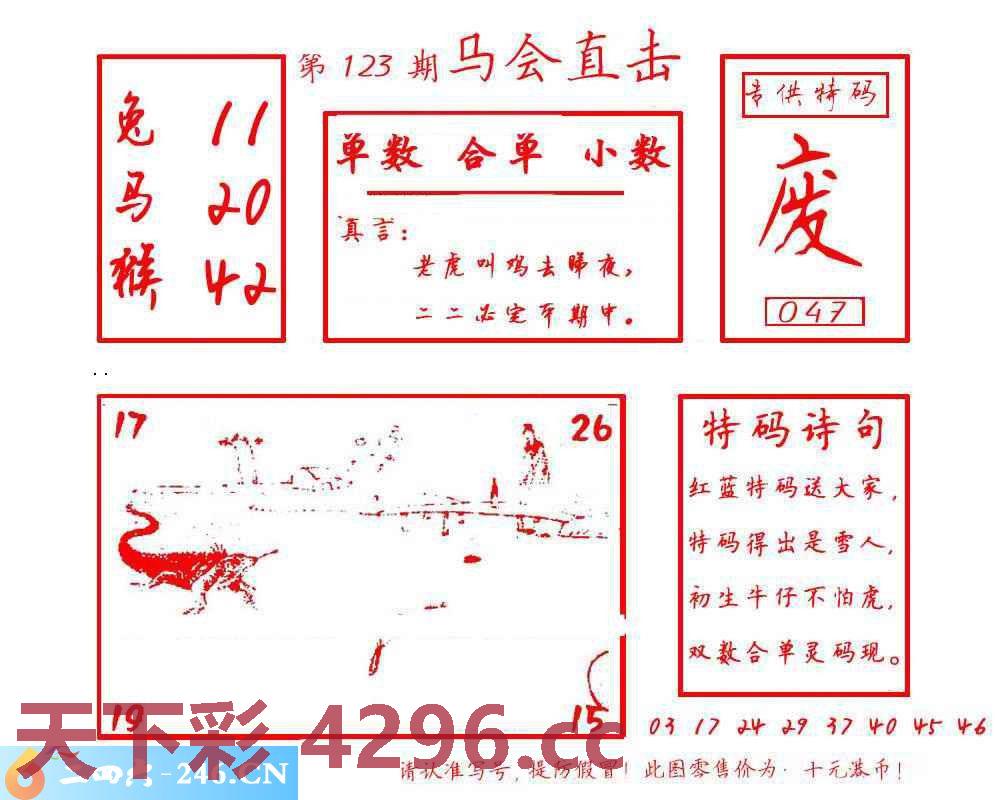 第 123 期 马会直击
兔 11
马 20
猴 42
单数 合单 小数
真言：
老虎叫鸡去睇夜，
二二必定本期中。
专供特码
废
047
17 26
19 15
特码诗句
红蓝特码送大家，
特码得出是雪人，
初生牛仔不怕虎，
双数合单灵码现。
03 17 24 29 37 40 45 46
天下彩 4296.cc
-246.CN
请认准写号，提防假冒！此图零售价为：十元港币！